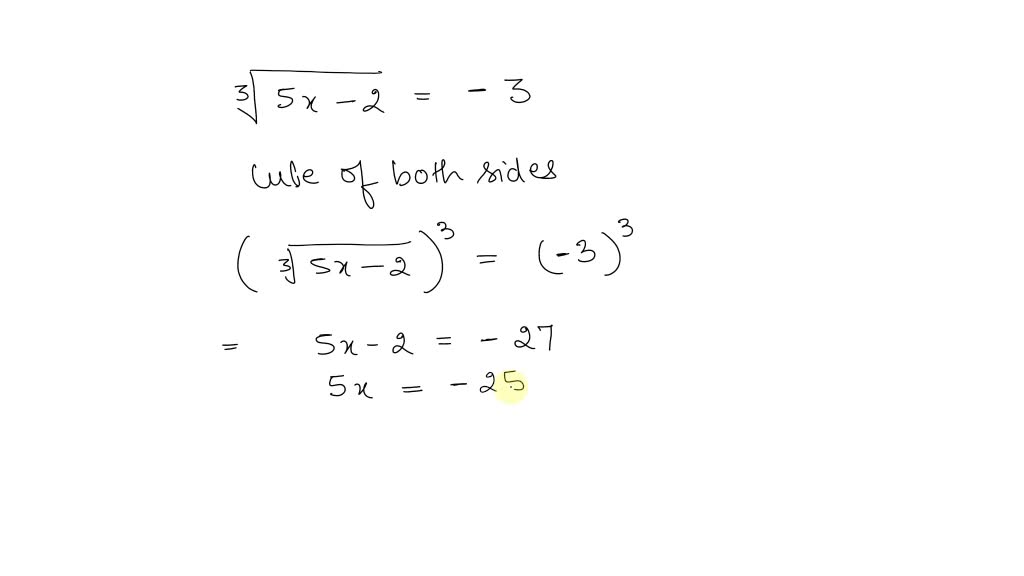 ∛(5x-2) = -3
Cube of both sides
(∛(5x-2))³ = (-3)³
= 5x-2 = -27
5x = -25